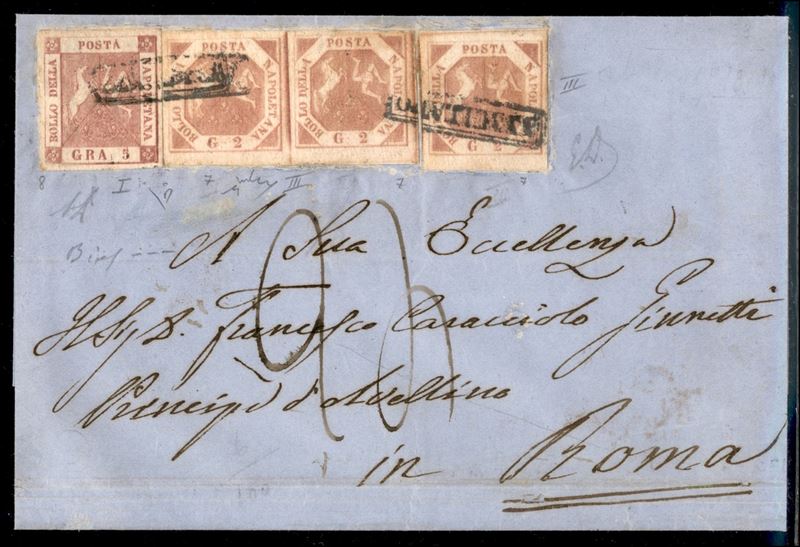 POSTA
BOLLO DELLA
NAPOLETANA
GRA. 5
POSTA
BOLLO DELLA
NAPOLETANA
G. 2
POSTA
BOLLO DELLA
NAPOLETANA
G. 2
POSTA
BOLLO DELLA
NAPOLETANA
G. 2
ANNULLATO
ANNULLATO
III
8 I 9 7 III 7 7
A Sua Eccellenza
Il Sig. D. Francesco Caracciolo
Principe d'Avellino
in Roma